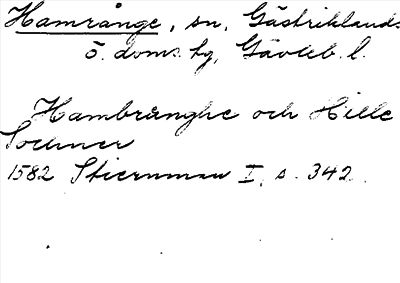 Hamrånge, sn, Gästriklands
ö. doms. hg, Gävleb. l.
Hambrånghe och Hille
Sochner
1582 Stiernman I, s. 342.